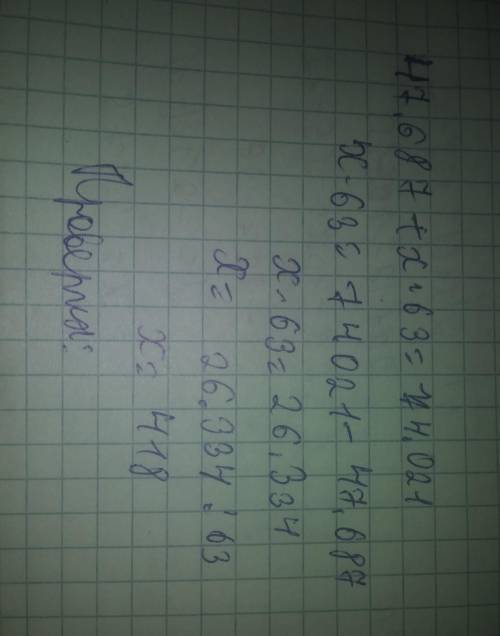 47,687 + x · 63 = 74,021
x · 63 = 74021 - 47,687
x · 63 = 26,334
x = 26.334 : 63
x = 418
Проверка: